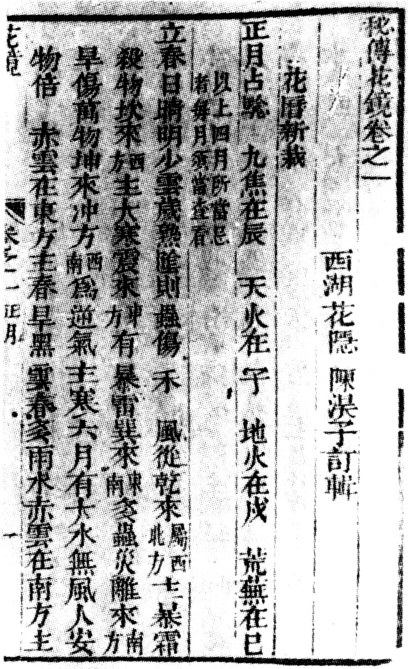 秘傳花鏡卷之一
西湖花隱 陳淏子訂輯
花曆新栽
正月占驗 九焦在辰 天火在子 地火在戌 荒蕪在巳
以上四月所當忌
者每月須當查看
立春日晴明少雲歲熟陰則蟲傷禾 風從乾來屬西北方主暴霜
殺物坎來西方主大寒震來方有暴雷巽來東南多蟲災離來南方
旱傷萬物坤來冲方西南爲逆氣主寒六月有大水無風人安
物倍 赤雲在東方主春旱黑雲春多雨水赤雲在南方主
花鏡 卷之一 正月